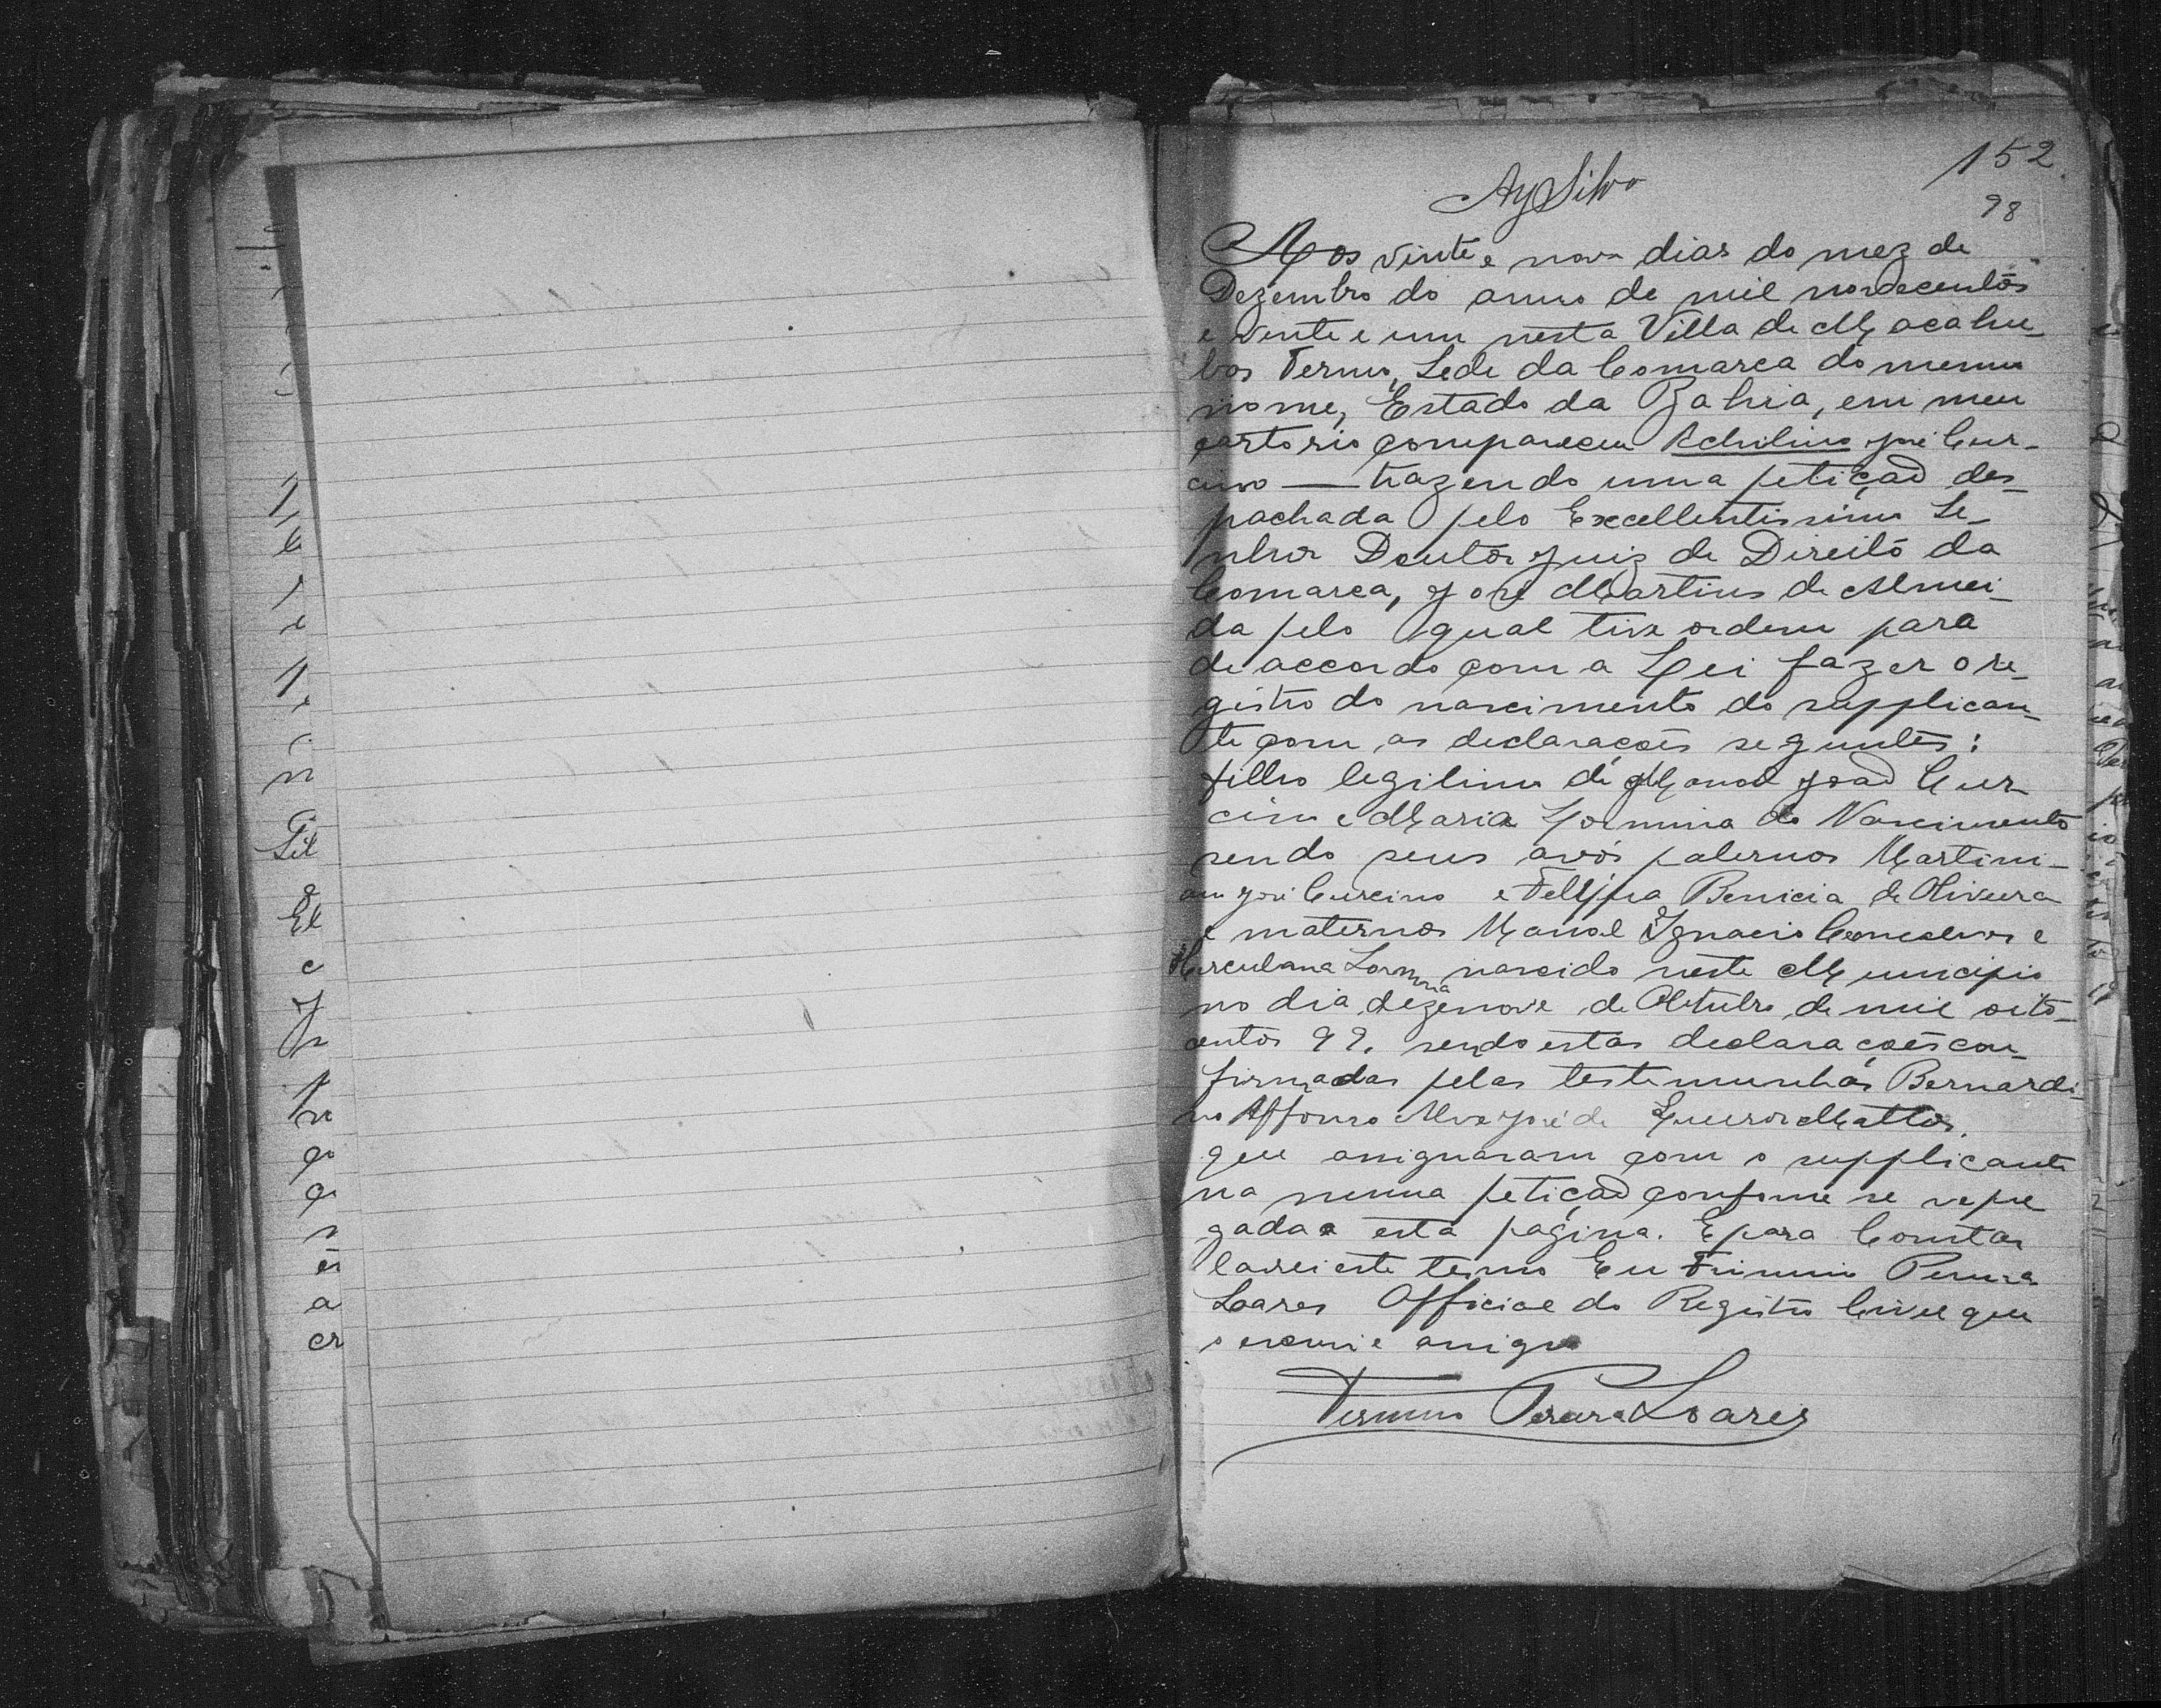 152
98
AySilva
Aos vinte e nove dias do mez de
Dezembro do anno de mil novecentos
e vente e um nesta Villa de Macahu-
bas Termo, Sede da Comarca do mesmo
nome, Estado da Bahia, em meu
cartorio compareceu Achilino José Cur-
cino — trazendo uma petição des-
pachada pelo Excellentissimo Se-
nhor Doutor Juiz de Direito da
Comarca, José Martins de Almei-
da pelo qual tive ordem para
de accordo com a Lei fazer o re-
gistro do nascimento do supplican-
te com as declarações seguintes:
filho legitimo de Manoel João Cur-
cino e Maria do Nascimento
sendo seus avós paternos Martini-
ano José Curcino e Felippa Benicia de Oliveira
e maternos Manoel Ignacio e
Herculana nascido neste Municipio
no dia dezenove de Obtubro de mil oito-
centos 99. sendo estas declarações con-
firmadas pelas testemunhas Bernardi-
no Affonso Alves José de Mattos.
que assignaram com o supplicante
na mesma petição conforme se ve pre
gada a esta pagina. E para Constar
lavrei este termo Eu Firmino Pereira
Soares Official do Registro Civil que
o escrevi e assigno
Firmino Pereira Soares
Fil
El
e